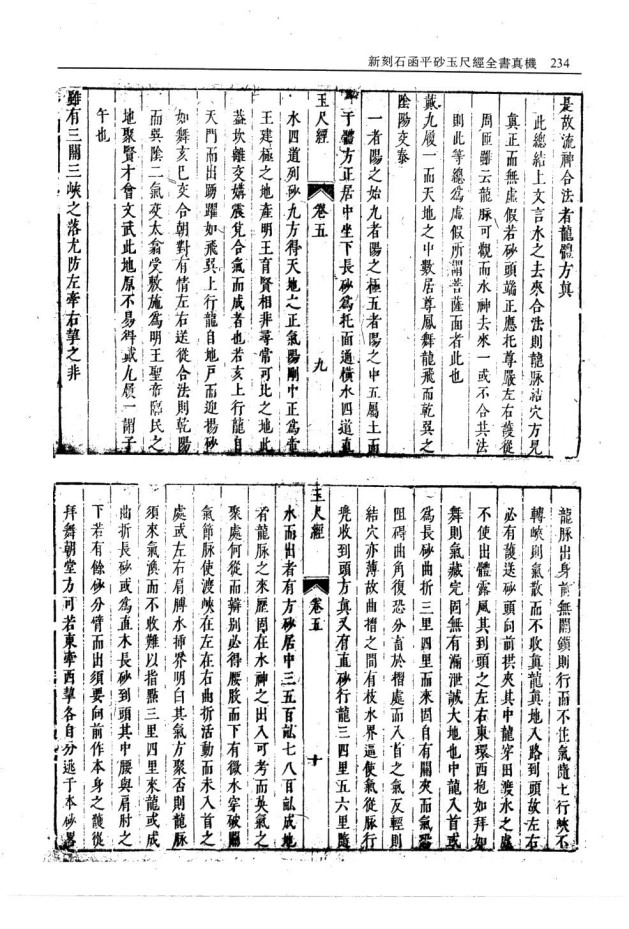 新刻石函平砂玉尺經全書真機 234
是故流神合法者龍體方真
此總結上文言水之去來合法則龍脉結穴方見
真正而無虛假若砂頭端正應托尊嚴左右護從
周匝雖云龍脉可觀而水神去來一或不合其法
則此等總爲虛假所謂菩薩面者此也
戴九履一而天地之中數居尊鳳舞龍飛而乾巽之
陰陽交泰
一者陽之始九者陽之極五者陽之中五屬土而
子體方正居中坐下長砂爲托面道橫水四道直
玉尺經 卷五 九
水四道列砂九方得天地之正氣陽剛中正爲當
王建極之地產明王育賢相非尋常可比之地此
蓋坎離交媾震兌合氣而成者也若亥上行龍自
天門而出踴躍如飛巽上行龍自地戶而迎揚砂
如舞亥巳交合朝對有情左右送從合法則乾陽
而巽陰二氣交太翕受敷施爲明王聖帝臨民之
地聚賢才會文武此地原不易得戴九履一謂子
午也
雖有三關三峽之落尤防左牽右掣之非
龍脉出身前無關鎖則行而不住氣隨土行峽不
轉峽則氣散而不收真龍真地入路到頭故左右
必有護送砂頭向前拱夾其中龍穿田渡水之處
不使出體露風其到頭之左右東環西抱如拜如
舞則氣藏完固無有漏泄誠大地也中龍入首或
爲長砂曲折三里四里而來固自有關夾而氣恐
阻碍曲角復恐分畜於摺處而入首之氣反輕則
結穴亦薄故曲摺之間有枝水界逼使氣從脉行
兠收到頭方真又有直砂行龍三四里五六里隨
玉尺經 卷五 十
水而出者有方砂居中三五百畝七八百畝成地
者龍脉之來歷固在水神之出入可考而英氣之
聚處何從而辨别必得腰胶而下有微水穿破關
氣節脉使渡峽在左在右曲折活動而未入首之
處或左右肩膊水揷界明白其氣方聚否則龍脉
須來氣渙而不收難以指點三里四里來龍或成
曲折長砂或爲直木長砂到頭其中腰與肩肘之
下若有餘砂分臂而出須要向前作本身之護從
拜舞朝堂方可若東牽西掣各自分逃于本砂畧